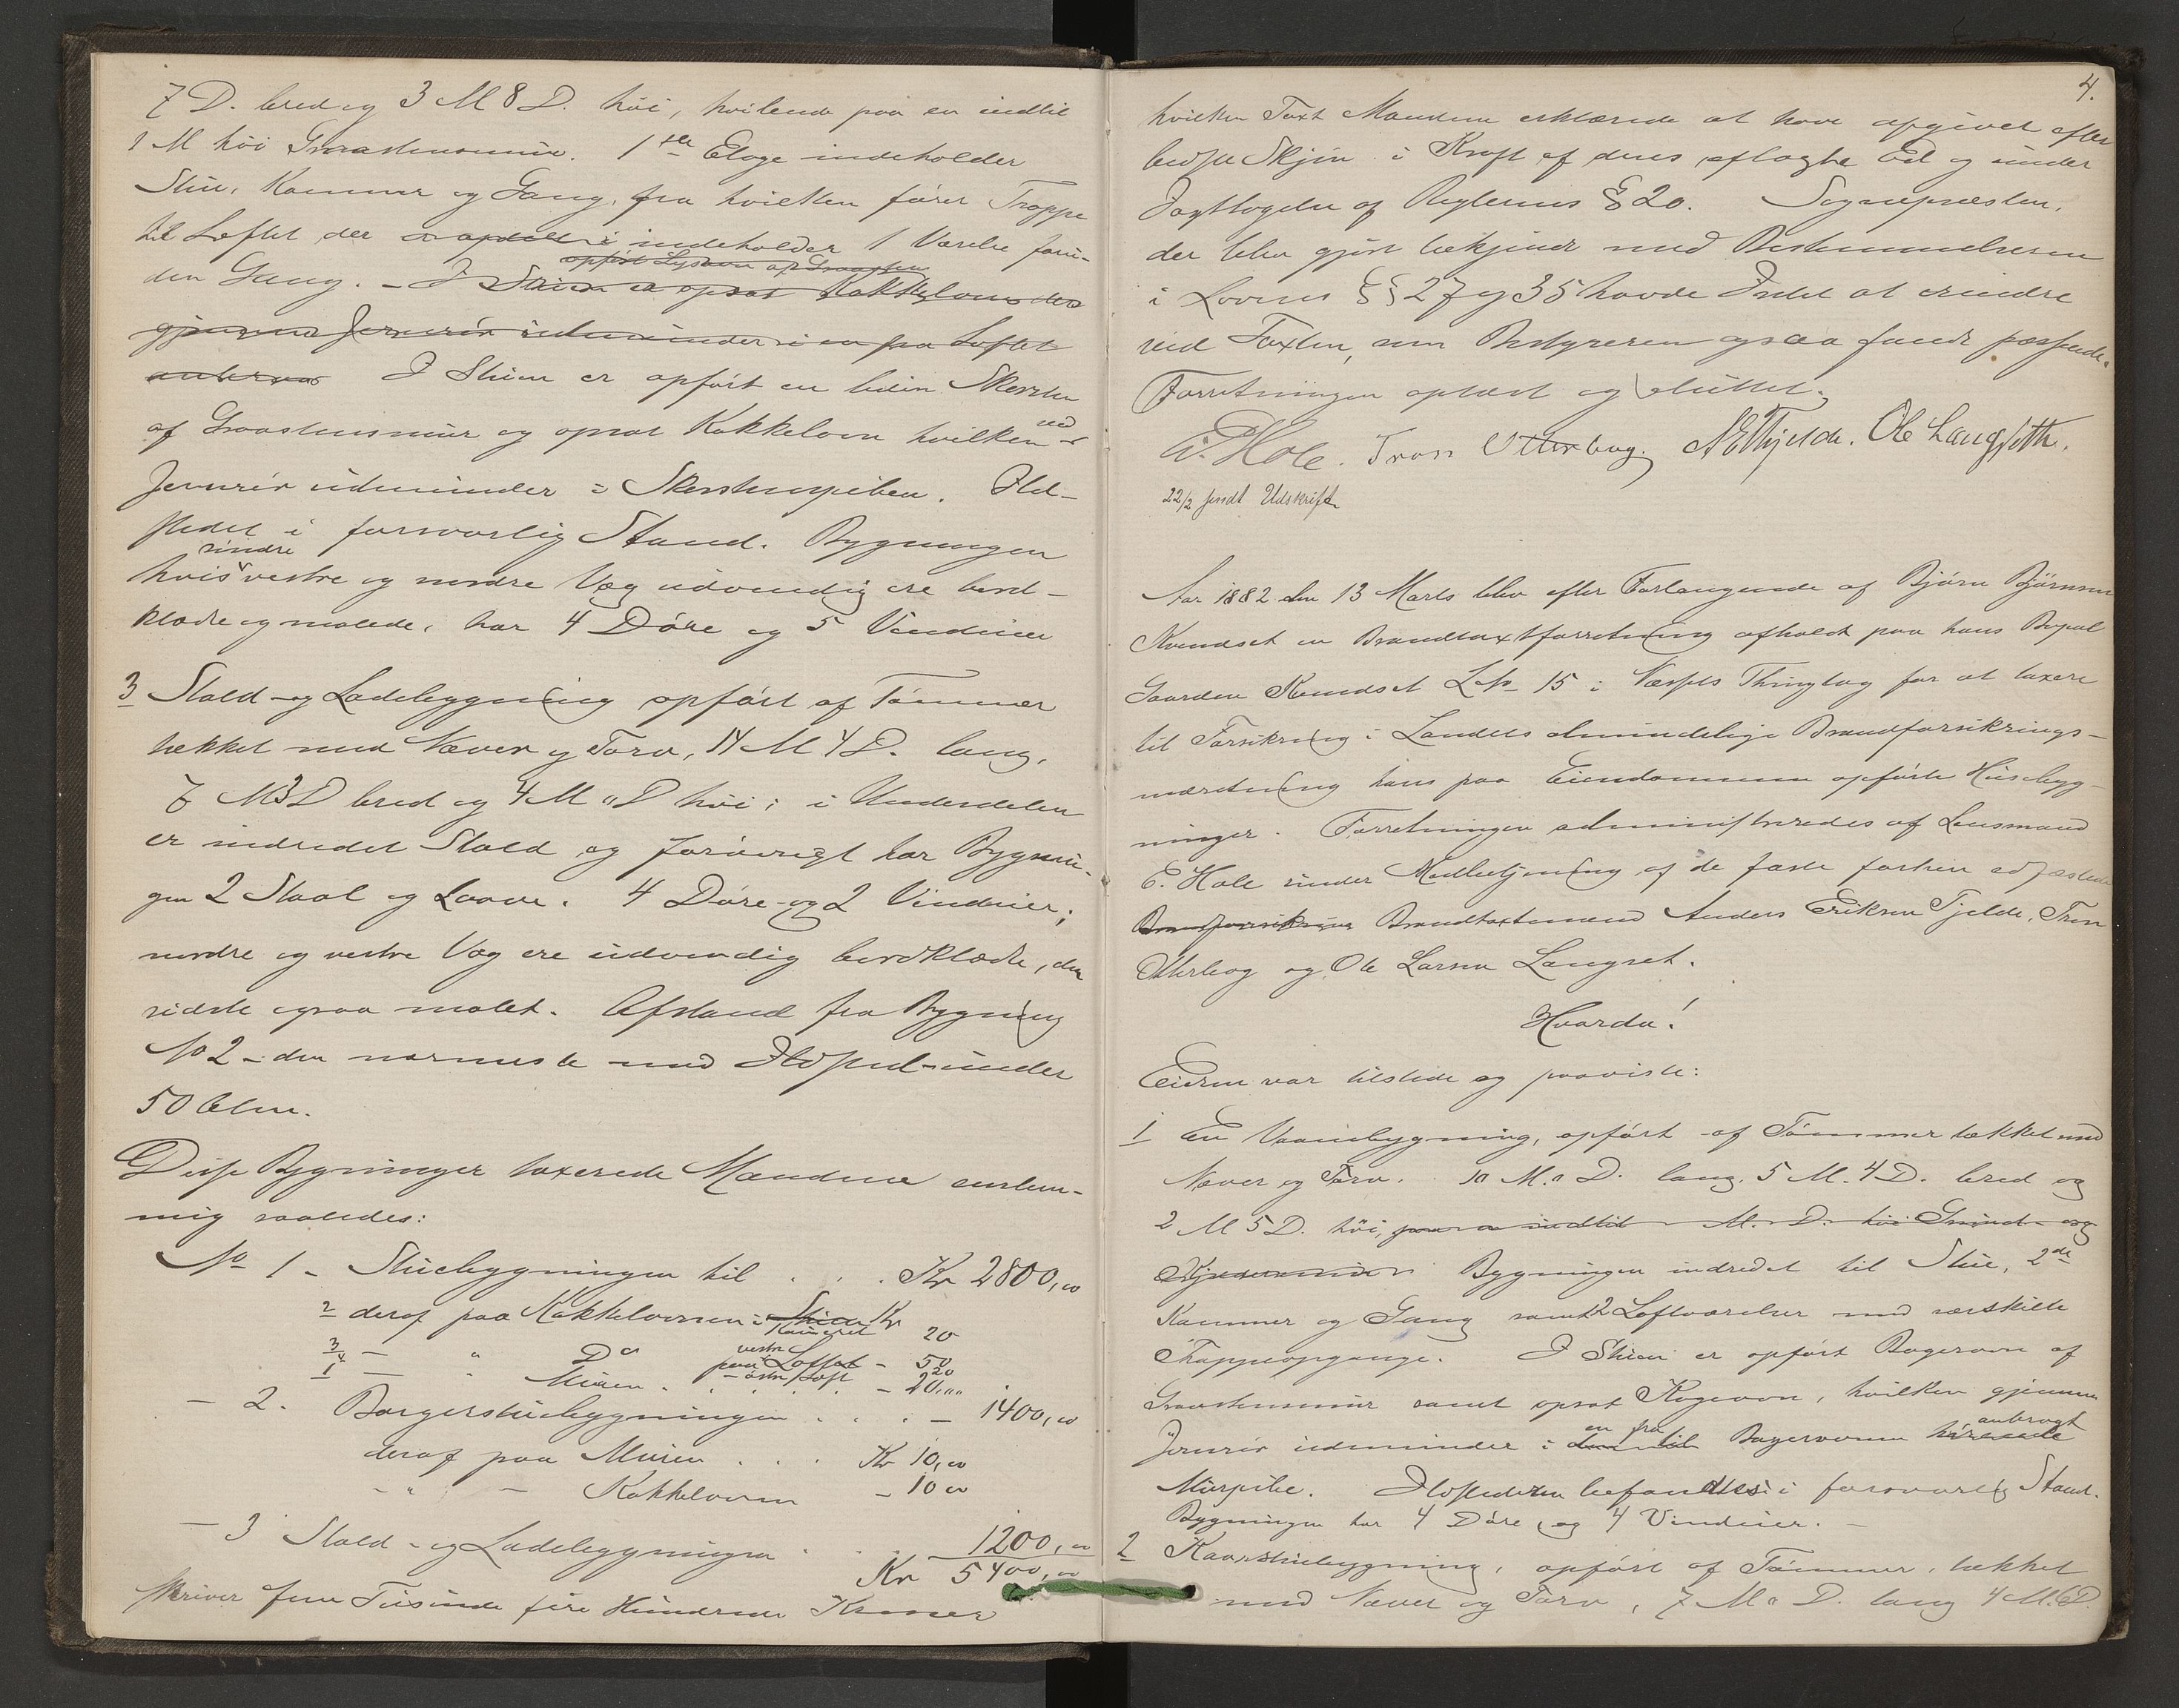 7 D. bred og 3 M 8 D. höi, hvilende paa en indtil
1 M höi Graastensmur. 1ste Etage indeholder
Stue, Kammer og Gang, fra hvilken förer Trappe
til Loftet der er opdelt i indeholder 1 Værelse foru-
opfört Lysovn af Graasten
den Gang. - I Stuen er opsat Kakkelovn der
gjennem Jernrör udmunder i en paa Loftet
I Stuen er opfört en liden Skorsten
af Graastensmur og opsat Kakkelovn hvilken ved
Jernrör udmunder i Skorstenspiben. Ild-
stedet i forsvarlig Stand. Bygningen
söndre
hvis vestre og nordre Væg udvendig ere bord-
klædte og malede, har 4 Döre og 5 Vinduer
3 Stald- og Ladebygning opfört af Tömmer
tækket med Næver og Torv, 14 M 4 D. lang,
7 M 3 D bred og 4 M " D höi; i Underdelen
er indredet Stald og forövrigt har Bygnin-
gen 2 Staal og Laave. 4 Döre og 2 Vinduer;
nordre og vestre Væg ere udvendig bordklædte, den
sidste ogsaa malet. Afstand fra Bygning
No 2 - den nærmeste med Ildsted - under
50 Alen.
Disse Bygninger taxerede Mændene enstem-
mig saaledes:
No 1 - Stuebygningen til . . . Kr 2800,00
2 deraf paa Kakkelovnen i Stuen Kr
Kammeret 20
3/4 — " Do vestre paa Loftet - 50
- östre Loft 20
1 — " Muren . . . . . - 20,00
- 2. Borgerstuebygningen . . . . - 1400,00
deraf paa Muren . . . Kr 10,00
- " - Kakkelovnen - 10 00
- 3 Stald- og Ladebygningen . . 1200,00
Kr 5400,00
skriver fem Tusinde fire Hundrede Kroner
4.
hvilken Taxt Mændene erklærede at have afgivet efter
bedste Skjön i Kraft af deres aflagte Ed og under
Iagttagelse af Reglernes § 20. Sognepræsten,
der blev gjort bekjendt med Bestemmelserne
i Lovens §§ 27 og 35 havde Intet at erindre
ved Taxten, som Bestyreren ogsaa fandt passende.
Forretningen oplæst og sluttet.
E. Hole. Tron Utterbog. A E Thjelde. Ole Langseth.
22/2 sendt Udskrift
Aar 1882 den 13 Marts blev efter Forlangende af Björn Björnsen
Kvendset en Brandtaxtforretning afholdt paa hans Bopæl
Gaarden Kvendset L.No 15 i Næssets Thinglag for at taxere
til Forsikring i Landets almindelige Brandforsikrings-
indretning hans paa Eiendommen opförte Husebyg-
ninger. Forretningen administreredes af Lensmand
E. Hole under Medbetjening af de faste forhen edfæstede
Brandforsikrings Brandtaxtmænd Anders Eriksen Tjelde, Tron
Utterbog og Ole Larsen Langset.
Hvorda!
Eieren var tilstede og paaviste:
1 En Vaanebygning, opfört af Tömmer tækket med
Næver og Torv. 10 M. " D. lang, 5 M. 4 D. bred og
2 M 5 D. höi, paa en indtil M. D. höi Grund- og
Kjeldermur. Bygningen indredet til Stue, 2de
Kammer og Gang samt 2 Loftværelser med særskilte
Trappeopgange. I Stuen er opfört Bagerovn af
Graastensmur samt opsat Kogeovn, hvilken gjennem
en fra anbragt
Jernrör udmunder i den til Bagerovnen hörende
Murpibe. Ildstederne befandtes i forsvarlig Stand.
Bygningen har 4 Döre og 4 Vinduer. -
2 Kaarstuebygning, opfört af Tömmer, tækket
med Næver og Torv, 7 M " D. lang 4 M. 6 D.